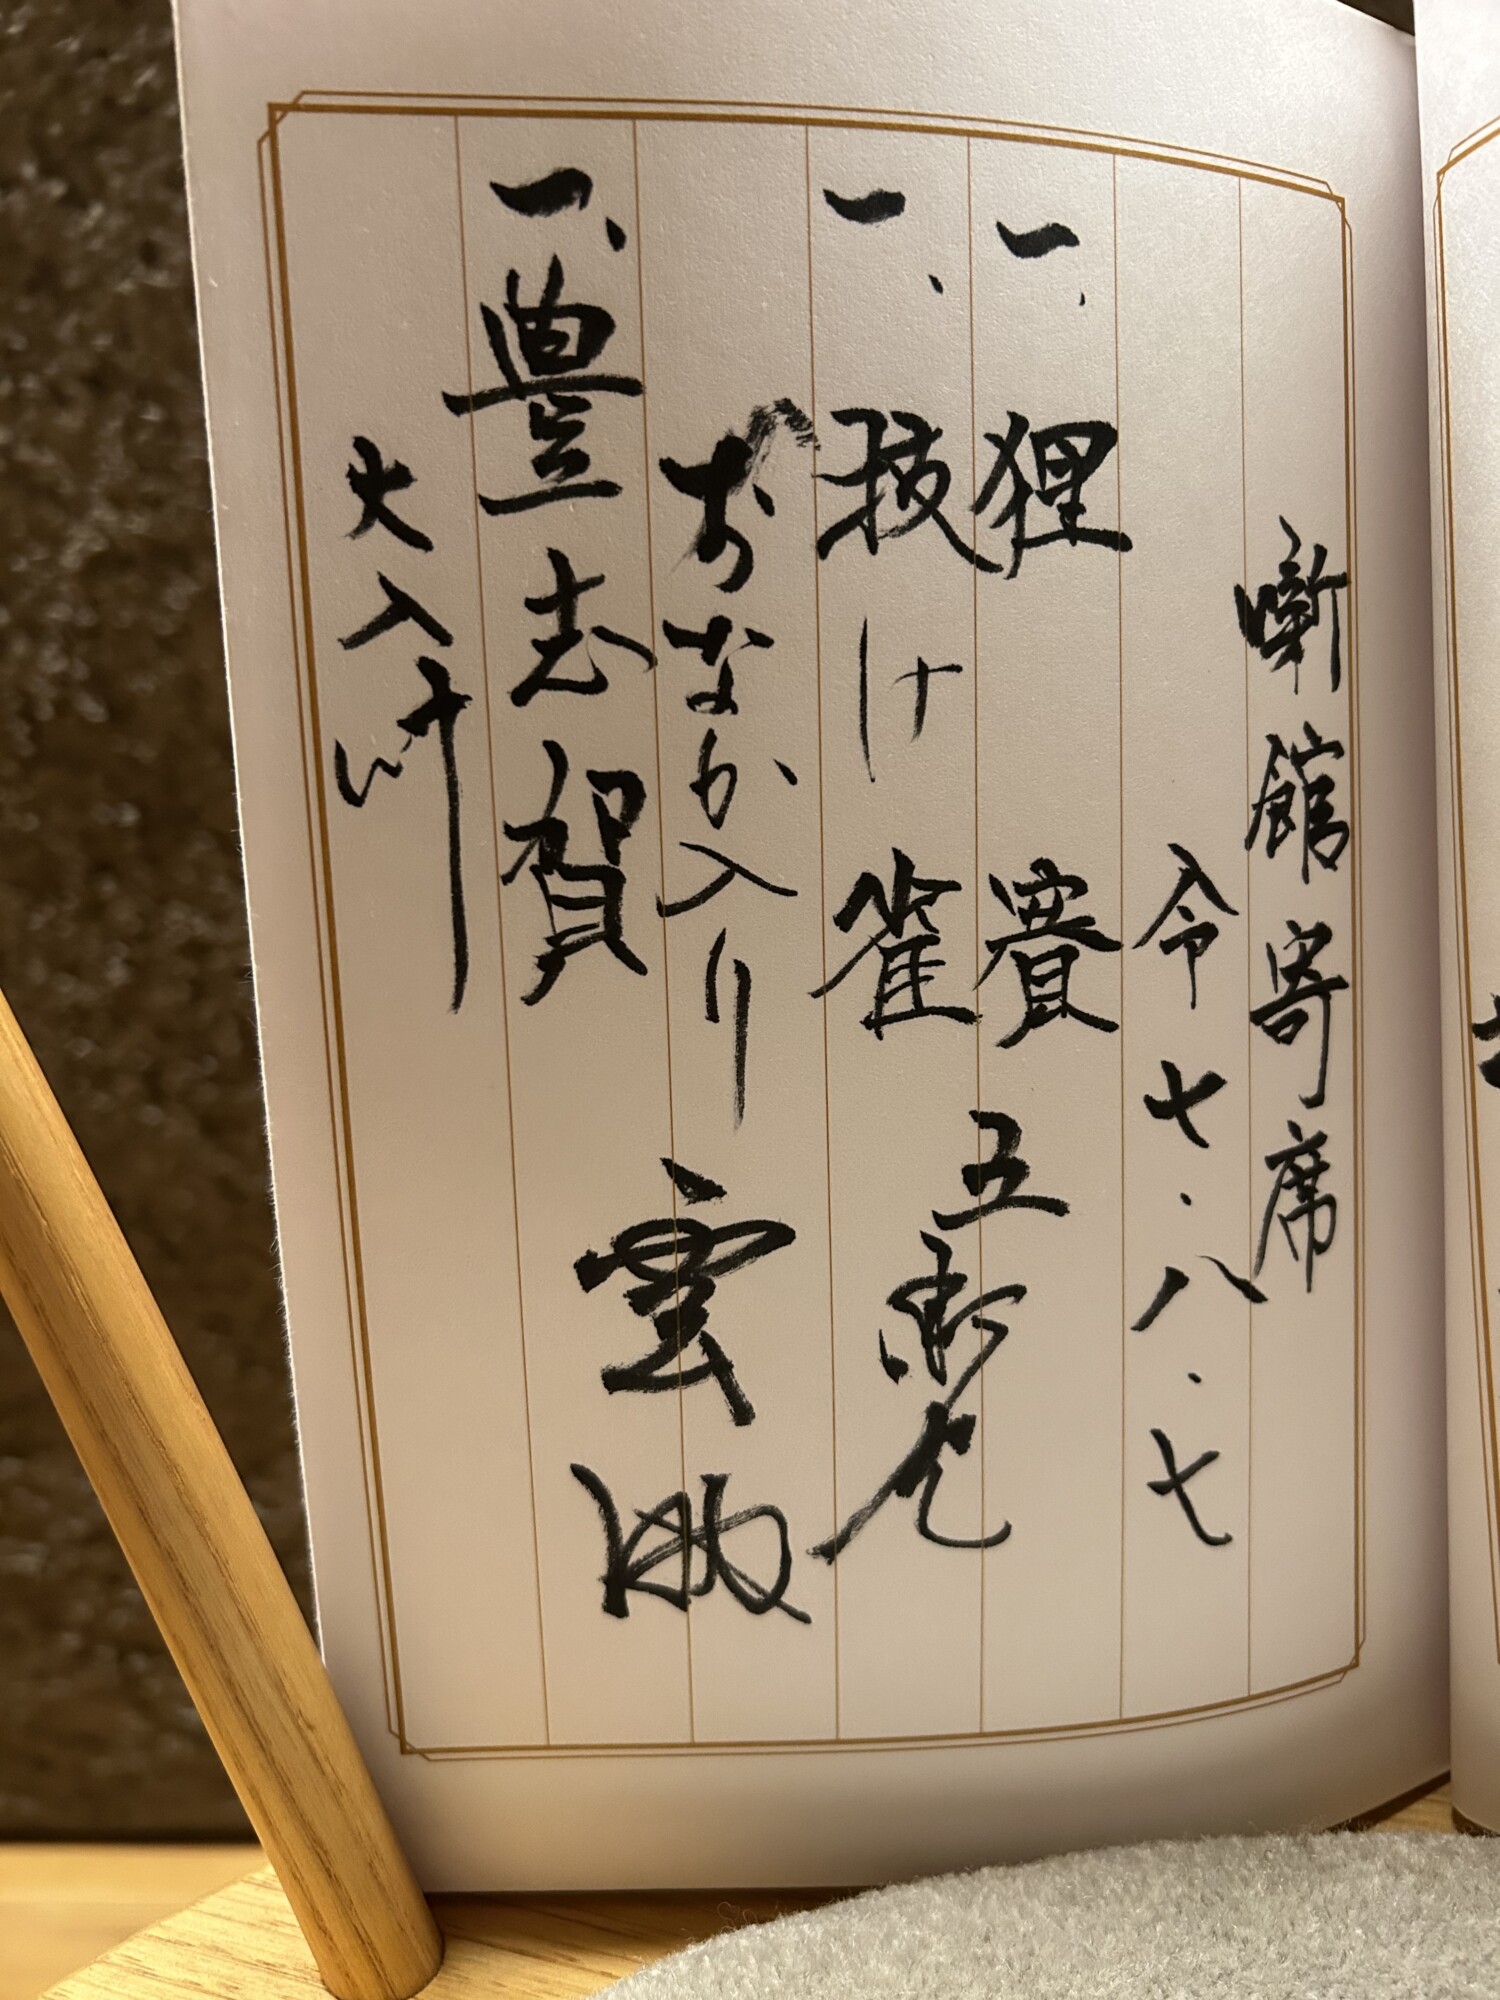 噺館寄席
令七.八.七
一、狸賽
一、抜け雀
五街道
おなか入り
雲助
一、豊志賀
大入叶